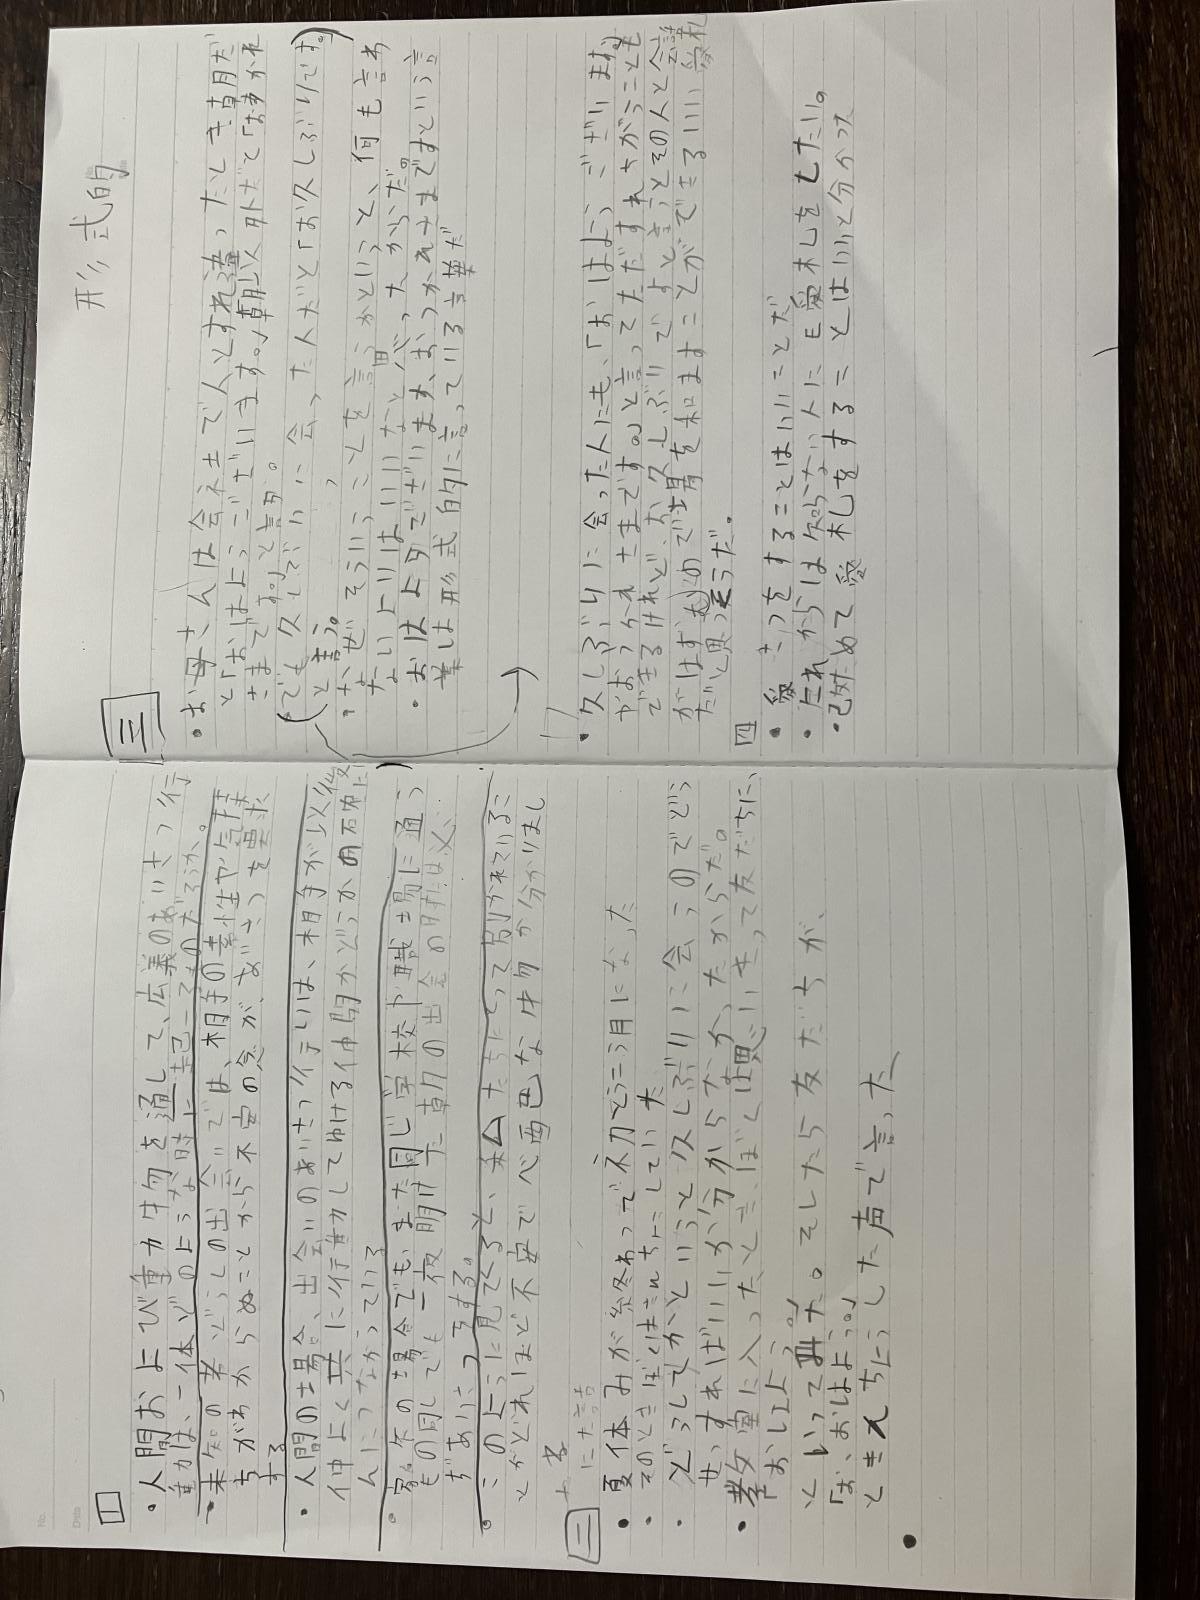 No.
Date
一
・人間および動物を通して、広義のあいさつ行
動は、一体どのような時に起こるのだろうか。
・未知の者どうしの出会いでは、相手の素性や気持
ちがわからぬことから不安の念が、あいさつを要求
する
・人間の場合、出会いのあいさつ行動は、相手が以後
仲よく共に行動してゆける仲間かどうかの確に
んにつながっている
・家々の場合でも、また同じ学校や職場に通う
もの同しでも一夜明けた朝の出会の時は必
ずあいさつをする。
・このように見てくると、私たちにとって別れているこ
とがどれほど不安で心配な物か分かりまし
た
二
・夏休みが終わって不力どう三月になった
・そのときぼくはきんちょうしていた
・どうしてかというと久しぶりに会うのでどう
せっすればいいか分からなかったからだ。
・教室に入ったとき、ぼくは思いきって友だちに、
「おはよう。」
といって見た。そしたら友だちが、
「お、おはよう。」
ときんちょうした声で言った
形式的
三
・お母さんは会社で人とすれ違ったとき朝だ
と「おはようございます。」朝以外だと「おつかれ
さまです。」と言う。
(でも久しぶりに会った人だと「お久しぶりです。」
と言う。)
・なぜそういうことを言うかというと、何も言わ
ないよりはいいなと思ったからだ。
・おはようございます、おつかれさまですという言
葉は形式的に言っている言葉だ
・久しぶりに会った人にも、「おはようございます。」
やおつかれさまです。」と言ってただすれちがうことも
できるけれど、お久しぶりですと言うとその人と会話
がはずむので場を和ますことができるいい愛札
だと思ったそうだ。
四
・愛さつをすることはいいことだ
・これからは知らない人にも愛札をしたい。
・改ためて愛札をすることはいいと分かった